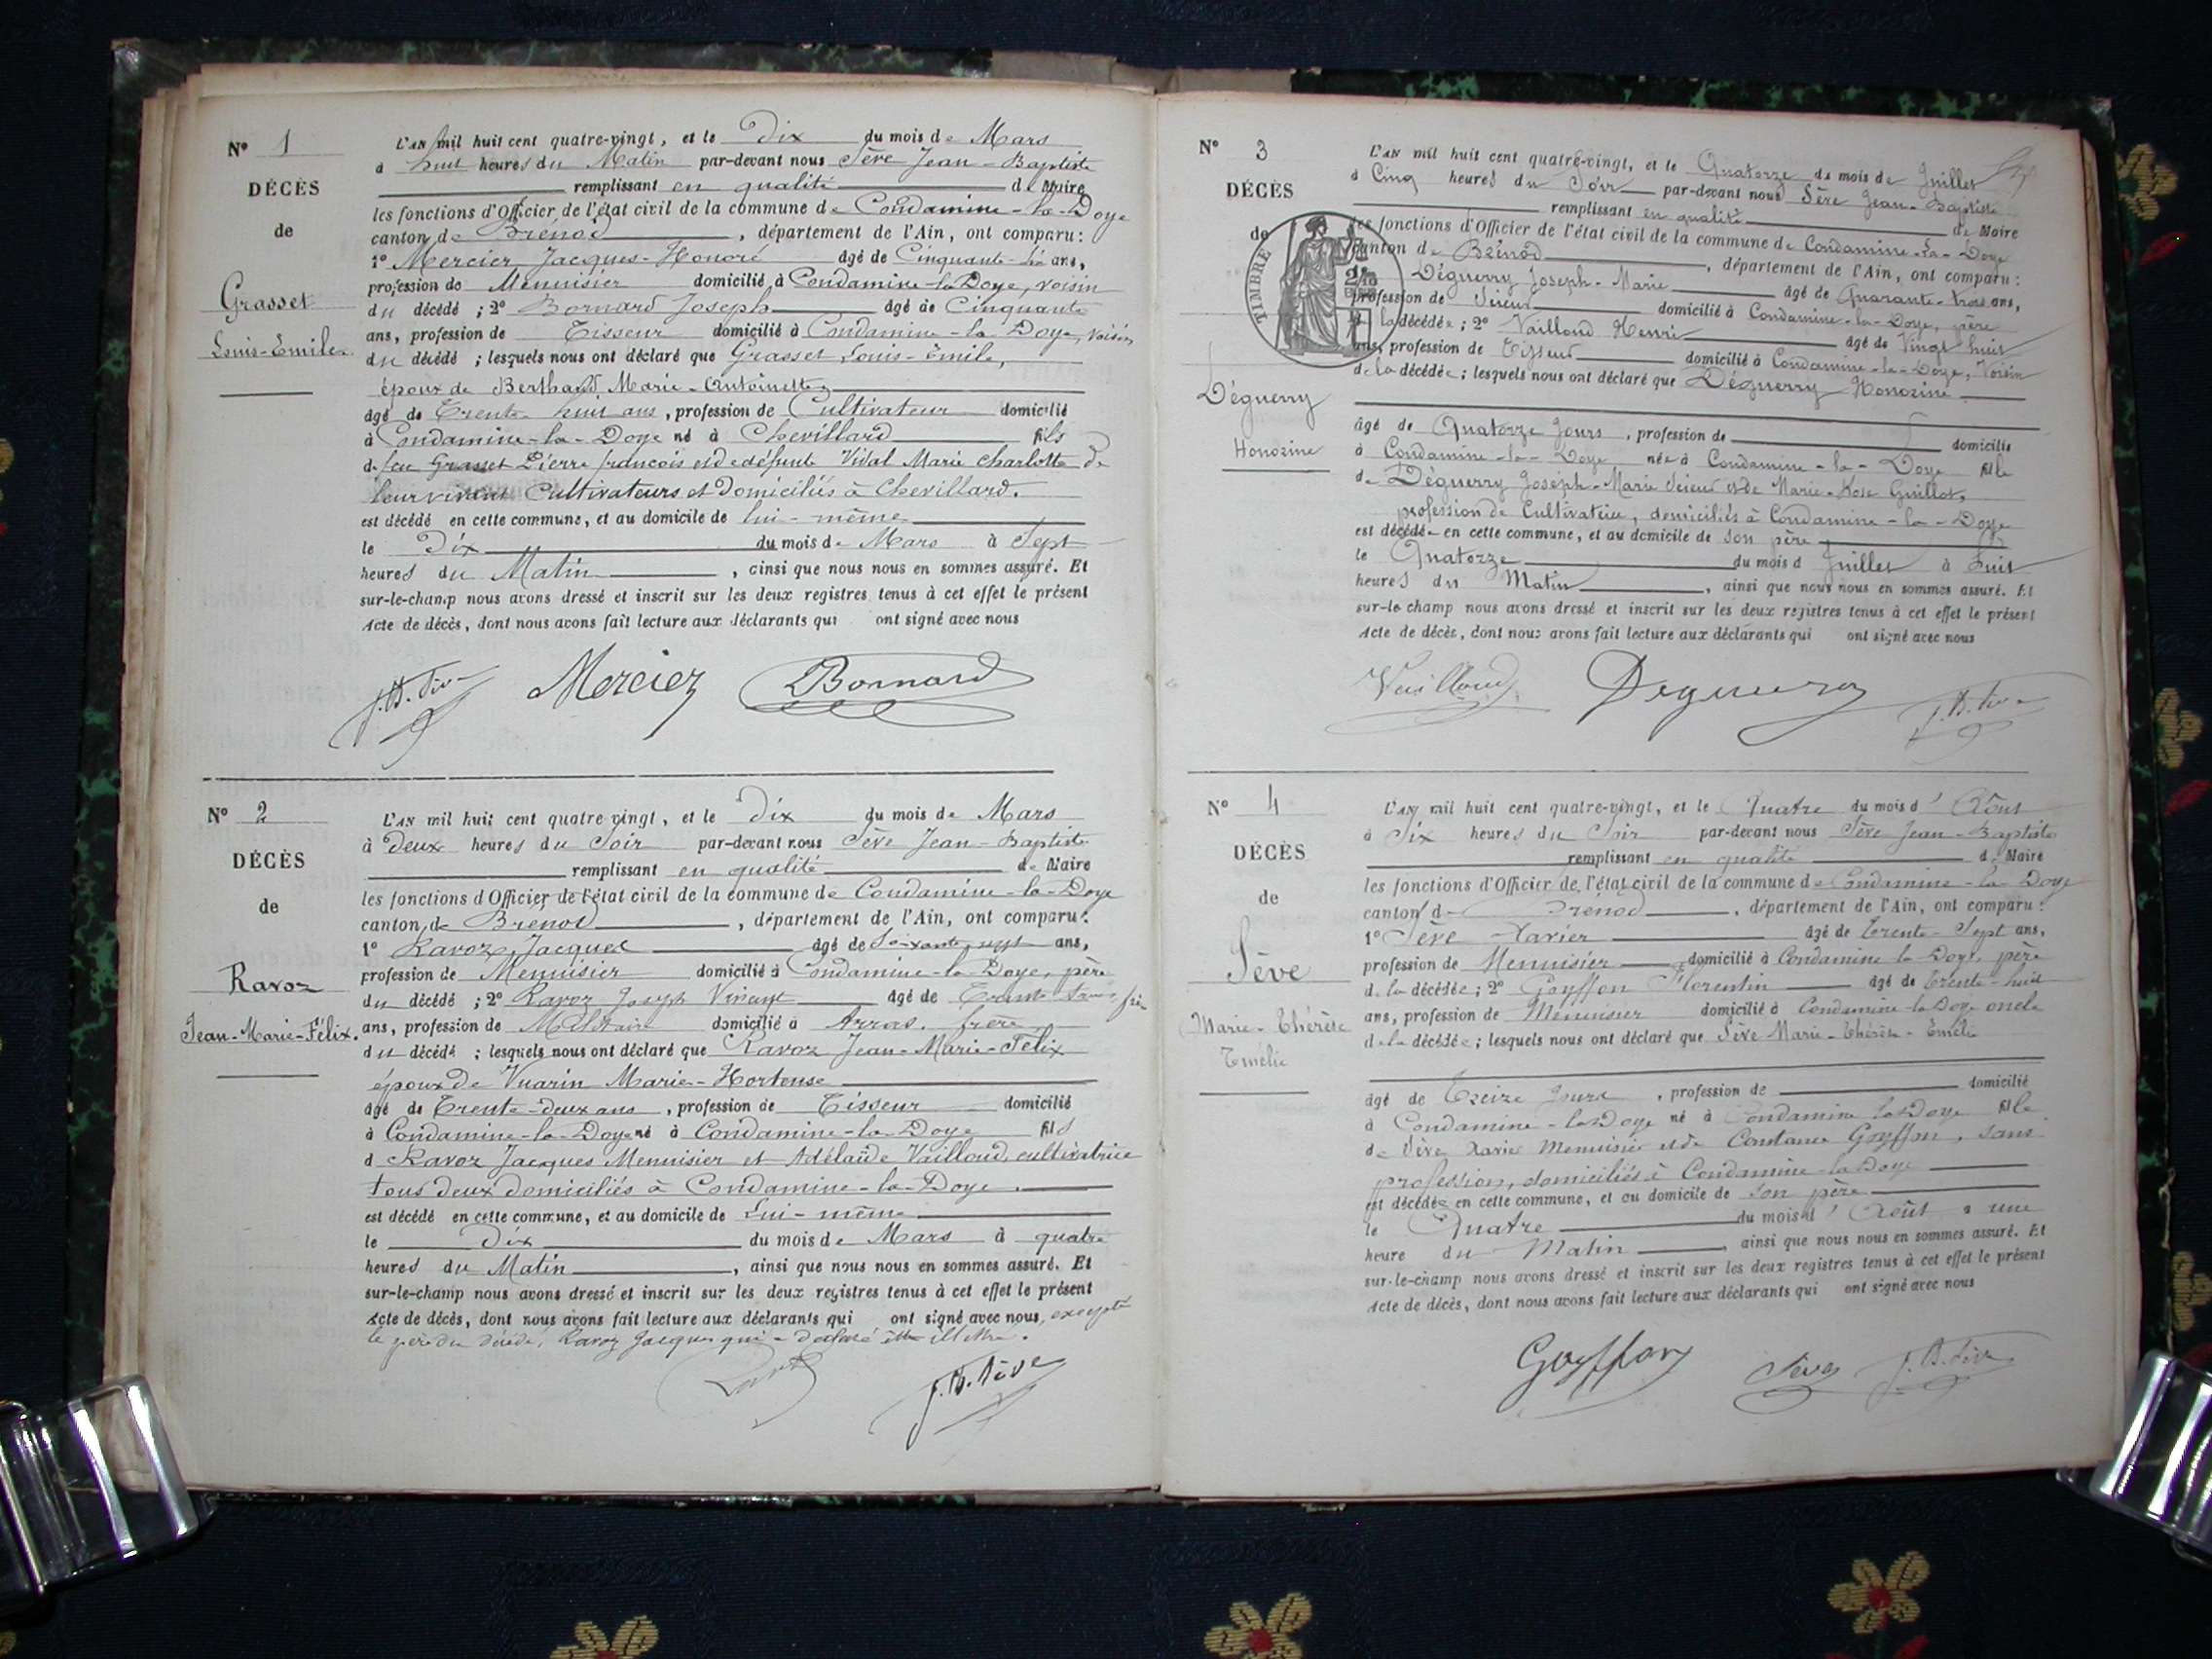 N° 1
DÉCÈS
de
Grasset
Louis-Emile
L'AN mil huit cent quatre-vingt, et le Dix du mois de Mars
à huit heures du Matin par-devant nous Sève Jean-Baptiste
remplissant en qualité de Maire
les fonctions d'Officier de l'état civil de la commune de Condamine-la-Doye
canton de Brénod, département de l'Ain, ont comparu:
1° Mercier Jacques-Honoré âgé de Cinquante-six ans,
profession de Menuisier domicilié à Condamine-la-Doye, voisin
du décédé ; 2° Bornard Joseph âgé de Cinquante
ans, profession de Tisseur domicilié à Condamine-la-Doye, voisin
du décédé ; lesquels nous ont déclaré que Grasset Louis-Emile,
époux de Berthard Marie-Antoinette
âgé de Trente-huit ans, profession de Cultivateur domicilié
à Condamine-la-Doye né à Chevillard fils
de feu Grasset Pierre françois et de défunte Vidal Marie Charlotte de
leur vivant Cultivateurs et Domiciliés à Chevillard.
est décédé en cette commune, et au domicile de lui-même
le Dix du mois de Mars à Sept
heures du Matin, ainsi que nous nous en sommes assuré. Et
sur-le-champ nous avons dressé et inscrit sur les deux registres tenus à cet effet le présent
Acte de décès, dont nous avons fait lecture aux déclarants qui ont signé avec nous
J.B. Sève Mercier Bornard
N° 2
DÉCÈS
de
Ravoz
Jean-Marie-Félix.
L'AN mil huit cent quatre-vingt, et le Dix du mois de Mars
à Deux heures du Soir par-devant nous Sève Jean-Baptiste
remplissant en qualité de Maire
les fonctions d'Officier de l'état civil de la commune de Condamine-la-Doye
canton de Brénod, département de l'Ain, ont comparu:
1° Ravoz Jacques âgé de Soixante-sept ans,
profession de Menuisier domicilié à Condamine-la-Doye, père
du décédé ; 2° Ravoz Joseph Vincent âgé de Trente
ans, profession de Militaire domicilié à Arras. frère
du décédé ; lesquels nous ont déclaré que Ravoz Jean-Marie-Félix
époux de Vuarin Marie-Hortense
âgé de Trente-deux ans, profession de Tisseur domicilié
à Condamine-la-Doye né à Condamine-la-Doye fils
d Ravoz Jacques Menuisier et Adélaïde Vailloud, cultivatrice
tous deux domiciliés à Condamine-la-Doye.
est décédé en cette commune, et au domicile de Lui-même
le Dix du mois de Mars à quatre
heures du Matin, ainsi que nous nous en sommes assuré. Et
sur-le-champ nous avons dressé et inscrit sur les deux registres tenus à cet effet le présent
Acte de décès, dont nous avons fait lecture aux déclarants qui ont signé avec nous, excepté
le père du décédé, Ravoz Jacques qui a déclaré être illettré.
J.B. Sève
N° 3
DÉCÈS
de
TIMBRE
Déguerry
Honorine
L'AN mil huit cent quatre-vingt, et le Quatorze du mois de Juillet
à Cinq heures du Soir par-devant nous Sève Jean-Baptiste
remplissant en qualité de Maire
les fonctions d'Officier de l'état civil de la commune de Condamine-la-Doye
canton de Brénod, département de l'Ain, ont comparu:
Déguerry Joseph-Marie âgé de Quarante-trois ans,
profession de Scieur domicilié à Condamine-la-Doye, père
de la décédée ; 2° Vailloud Henri âgé de Vingt huit
ans, profession de Tisseur domicilié à Condamine-la-Doye, Voisin
de la décédée ; lesquels nous ont déclaré que Déguerry Honorine
âgé de Quatorze jours, profession de domicilié
à Condamine-la-Doye née à Condamine-la-Doye fille
de Déguerry Joseph-Marie Scieur et de Marie-Rose Guillot,
profession de Cultivatrice, domiciliés à Condamine-la-Doye
est décédée en cette commune, et au domicile de son père
le Quatorze du mois d Juillet à huit
heures du Matin, ainsi que nous nous en sommes assuré. Et
sur-le-champ nous avons dressé et inscrit sur les deux registres tenus à cet effet le présent
Acte de décès, dont nous avons fait lecture aux déclarants qui ont signé avec nous
Vailloud Déguerry J.B. Sève
N° 4
DÉCÈS
de
Sève
Marie-Thérèse
Emélie
L'AN mil huit cent quatre-vingt, et le Quatre du mois d'Août
à Six heures du Soir par-devant nous Sève Jean-Baptiste
remplissant en qualité de Maire
les fonctions d'Officier de l'état civil de la commune de Condamine-la-Doye
canton d Brénod, département de l'Ain, ont comparu:
1° Sève Xavier âgé de trente-Sept ans,
profession de Menuisier domicilié à Condamine la Doye, père
de la décédée ; 2° Goyffon Florentin âgé de trente-huit
ans, profession de Menuisier domicilié à Condamine-la-Doye oncle
de la décédée ; lesquels nous ont déclaré que Sève Marie-Thérèse-Emélie
âgé de Treize jours, profession de domicilié
à Condamine-la-Doye né à Condamine la Doye fille
de Sève Xavier Menuisier et de Constance Goyffon, sans
profession, domiciliés à Condamine-la-Doye
est décédée en cette commune, et au domicile de son père
le Quatre du mois d'Août à une
heure du Matin, ainsi que nous nous en sommes assuré. Et
sur-le-champ nous avons dressé et inscrit sur les deux registres tenus à cet effet le présent
Acte de décès, dont nous avons fait lecture aux déclarants qui ont signé avec nous
Goyffon Sève J.B. Sève